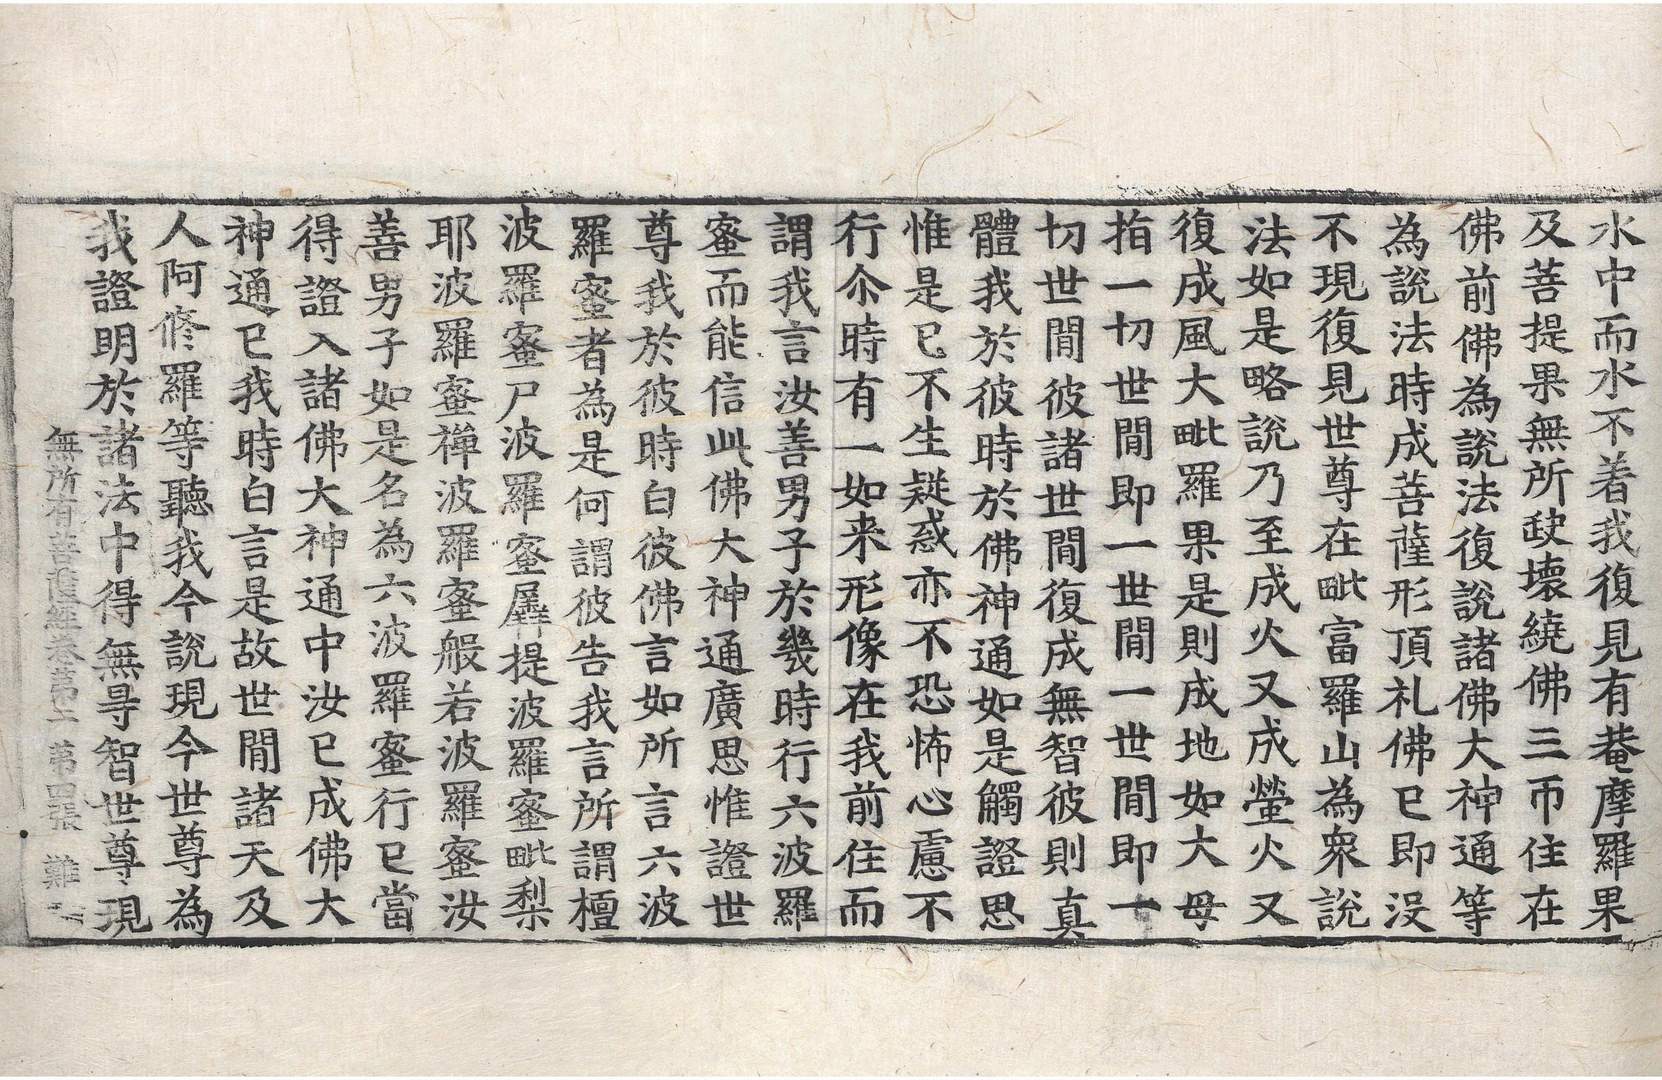 水中而水不着我復見有菴摩羅果
及菩提果無所𡙇壞繞佛三帀住在
佛前佛為說法復說諸佛大神通等
為說法時成菩薩形頂礼佛已即没
不現復見世尊在毗富羅山為衆說
法如是略說乃至成火又成螢火又
復成風大毗羅果是則成地如大母
指一切世閒即一世閒一世閒即一
切世閒彼諸世閒復成無智彼則真
體我於彼時於佛神通如是觸證思
惟是已不生疑惑亦不恐怖心慮不
行尒時有一如来形像在我前住而
謂我言汝善男子於幾時行六波羅
蜜而能信此佛大神通廣思惟證世
尊我於彼時白彼佛言如所言六波
羅蜜者為是何謂彼告我言所謂檀
波羅蜜尸波羅蜜羼提波羅蜜毗梨
耶波羅蜜禪波羅蜜般若波羅蜜汝
善男子如是名為六波羅蜜行已當
得證入諸佛大神通中汝已成佛大
神通已我時白言是故世閒諸天及
人阿修羅等聽我今說現今世尊為
我證明於諸法中得無㝵智世尊現
無所有菩薩經卷苐二 苐四張 難